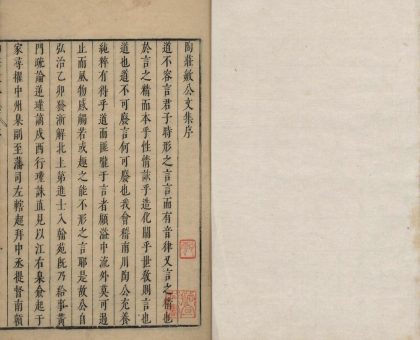 陶莊敏公文集序
道不容言君子時形之言言而有音律又言之精也
於言之精而本乎性情詠乎造化關乎世敎則言也
道也道不可廢言何可廢也我會稽南川陶公充養
純粹有得乎道而匪癯于言者顧溢中流外莫可遏
止而風物感觸若或趣之能不形之言耶是故公自
弘治乙卯發淛解北上第進士入翰苑旣乃給事黃
門疏論逆瑾謫戍西行瑾誅直見以江右臬僉起于
家尋擢中州臬副至藩司左轄起拜中丞提督南贛